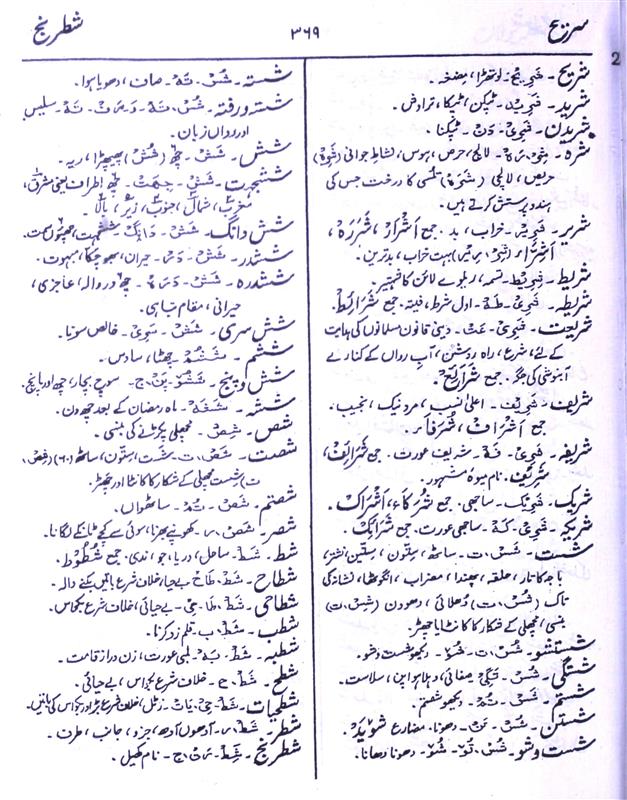 سرزیح
۳۶۹
شطرنج
شریح - شَرِیْح - لوتھڑا، مضغہ .
شرید - شَرِیْد - ٹپکن، ٹپکا، تراوش .
شریدن - شَرِیْ - دَن - ٹپکنا .
شرہ - شَ رَہ - لالچ، حرص، ہوس، نشاطِ جوانی (شَرِہ)
حریص، لالچی (شَرَہ) تلسی کا درخت جس کی
ہندو پرستش کرتے ہیں .
شریر - شَرِیْر - خراب، بد . جمع اَشْرَار، شُرَرَہ،
اَشِرَّاء بہت خراب، بدترین .
شریط - شَرِیْط - تسمہ، ریلوے لائن کا شہتیر .
شریطہ - شَرِیْ - طَہ - اول شرط، فیتہ . جمع شَرَائِط .
شریعت - شَرِیْ - عَت - دینی قانون مسلمانوں کی ہدایت
کے لئے، شرع، راہ روشن، آبِ رواں کے کنارے
آبنوشی کی جگہ . جمع شَرَائِع .
شریف - شَرِیْف - اعلیٰ النسب، مرد نیک، نجیب .
جمع اَشْرَاف، شُرَفَاء .
شریفہ - شَرِیْ - فَہ - شریف عورت . جمع شَرَائِف،
شَرِیْف . نام میوہ مشہور .
شریک - شَرِیْک - ساجھی . جمع شُرَکَاء، اَشْرَاک .
شریکہ - شَرِیْ - کَہ - ساجھی عورت . جمع شَرَائِک .
شست - شَسْ . ت - ساٹھ، ستّون، ستین، نشتر،
باجہ کا تار، حلقہ، پھندا، مضراب، انگوٹھا، نشانہ کی
تاک (شُسْ . ت) دُھلائی، دھوون (شِسْ . ت)
بنسی، مچھلی کے شکار کا کانٹا یا چھڑ .
شستشو - شُسْ . ت - شُوْ - دیکھو شست و شو .
شستگی - شُسْ - تَگِیْ صفائی، دہلا ہوا پن، سلاست .
شستم - شَسْ - تُم - دیکھو شصتم .
شستن - شُسْ - تَن - دھونا . مضارع شُوْیَد .
شست و شو - شُسْ . تُ - شُوْ - دھونا دھانا .
شستہ - شُسْ - تَہ - صاف، دھویا ہوا .
شستہ ورفتہ - شُسْ . تَہ - وَرُفْ - تَہ - سلیس
اور رواں زبان .
شش - شَشْ - چھ (شُش) پھیپھڑا، ریہ .
ششجہت - شَشْ - جِہَت - چھ اطراف یعنی مشرق،
مغرب، شمال، جنوب، زیر، بالا .
شش دانگ - شَشْ - دَانْگ -
ششدر - شَشْ - دَر - حیران، بھوچکا، مبہوت .
ششدرہ - شَشْ - دَرَہ - چھ دروالہ، عاجزی،
حیرانی، مقام تباہی .
شش سری - شَشْ - سَرِیْ - خالص سونا .
ششم - شَشُم - چھٹا، سادس .
شش و پنج - شَشُوْ - پَنْ . ج - سوچ بچار، چھ اور پانچ .
ششہ - شَشَہ - ماہ رمضان کے بعد چھ دن .
شص - شِص - مچھلی پکڑنے کی بنسی .
شصت - شَصْ . ت - شست، ستّون، ساٹھ (۶۰) (شِصْ .
ت) شست مچھلی کے شکار کا کانٹا اور چھڑ .
شصتم - شَصْ - تُم - ساٹھواں .
شصر - شَصْ . ر - کھونپے بھرنا، سوئی سے کچے ٹانکے لگانا .
شط - شَط - ساحل، دریا، جو، ندی . جمع شُطُوْط .
شطاح - شَطْ . طَاح بے حیا، خلاف شرع باتیں بکنے والہ .
شطاحی - شَطْ . طَا - حِیْ - بے حیائی، خلاف شرع بکواس .
شطب - شَطْ . ب - قلم زد کرنا .
شطبہ - شَطْ . بَہ - لمبی عورت، زن دراز قامت .
شطح - شَطْ . ح - خلاف شرع بکواس، بے حیائی .
شطحیات - شَطْ - حِیْ - یَات - زٹل، خلاف شرع بڑ اور بکواس کی باتیں .
شطر - شَطْ . ر - آدھوں آدھ، جزو، جانب، طرف .
شطرنج - شَطْ - رَنْ . ج - نام کھیل .